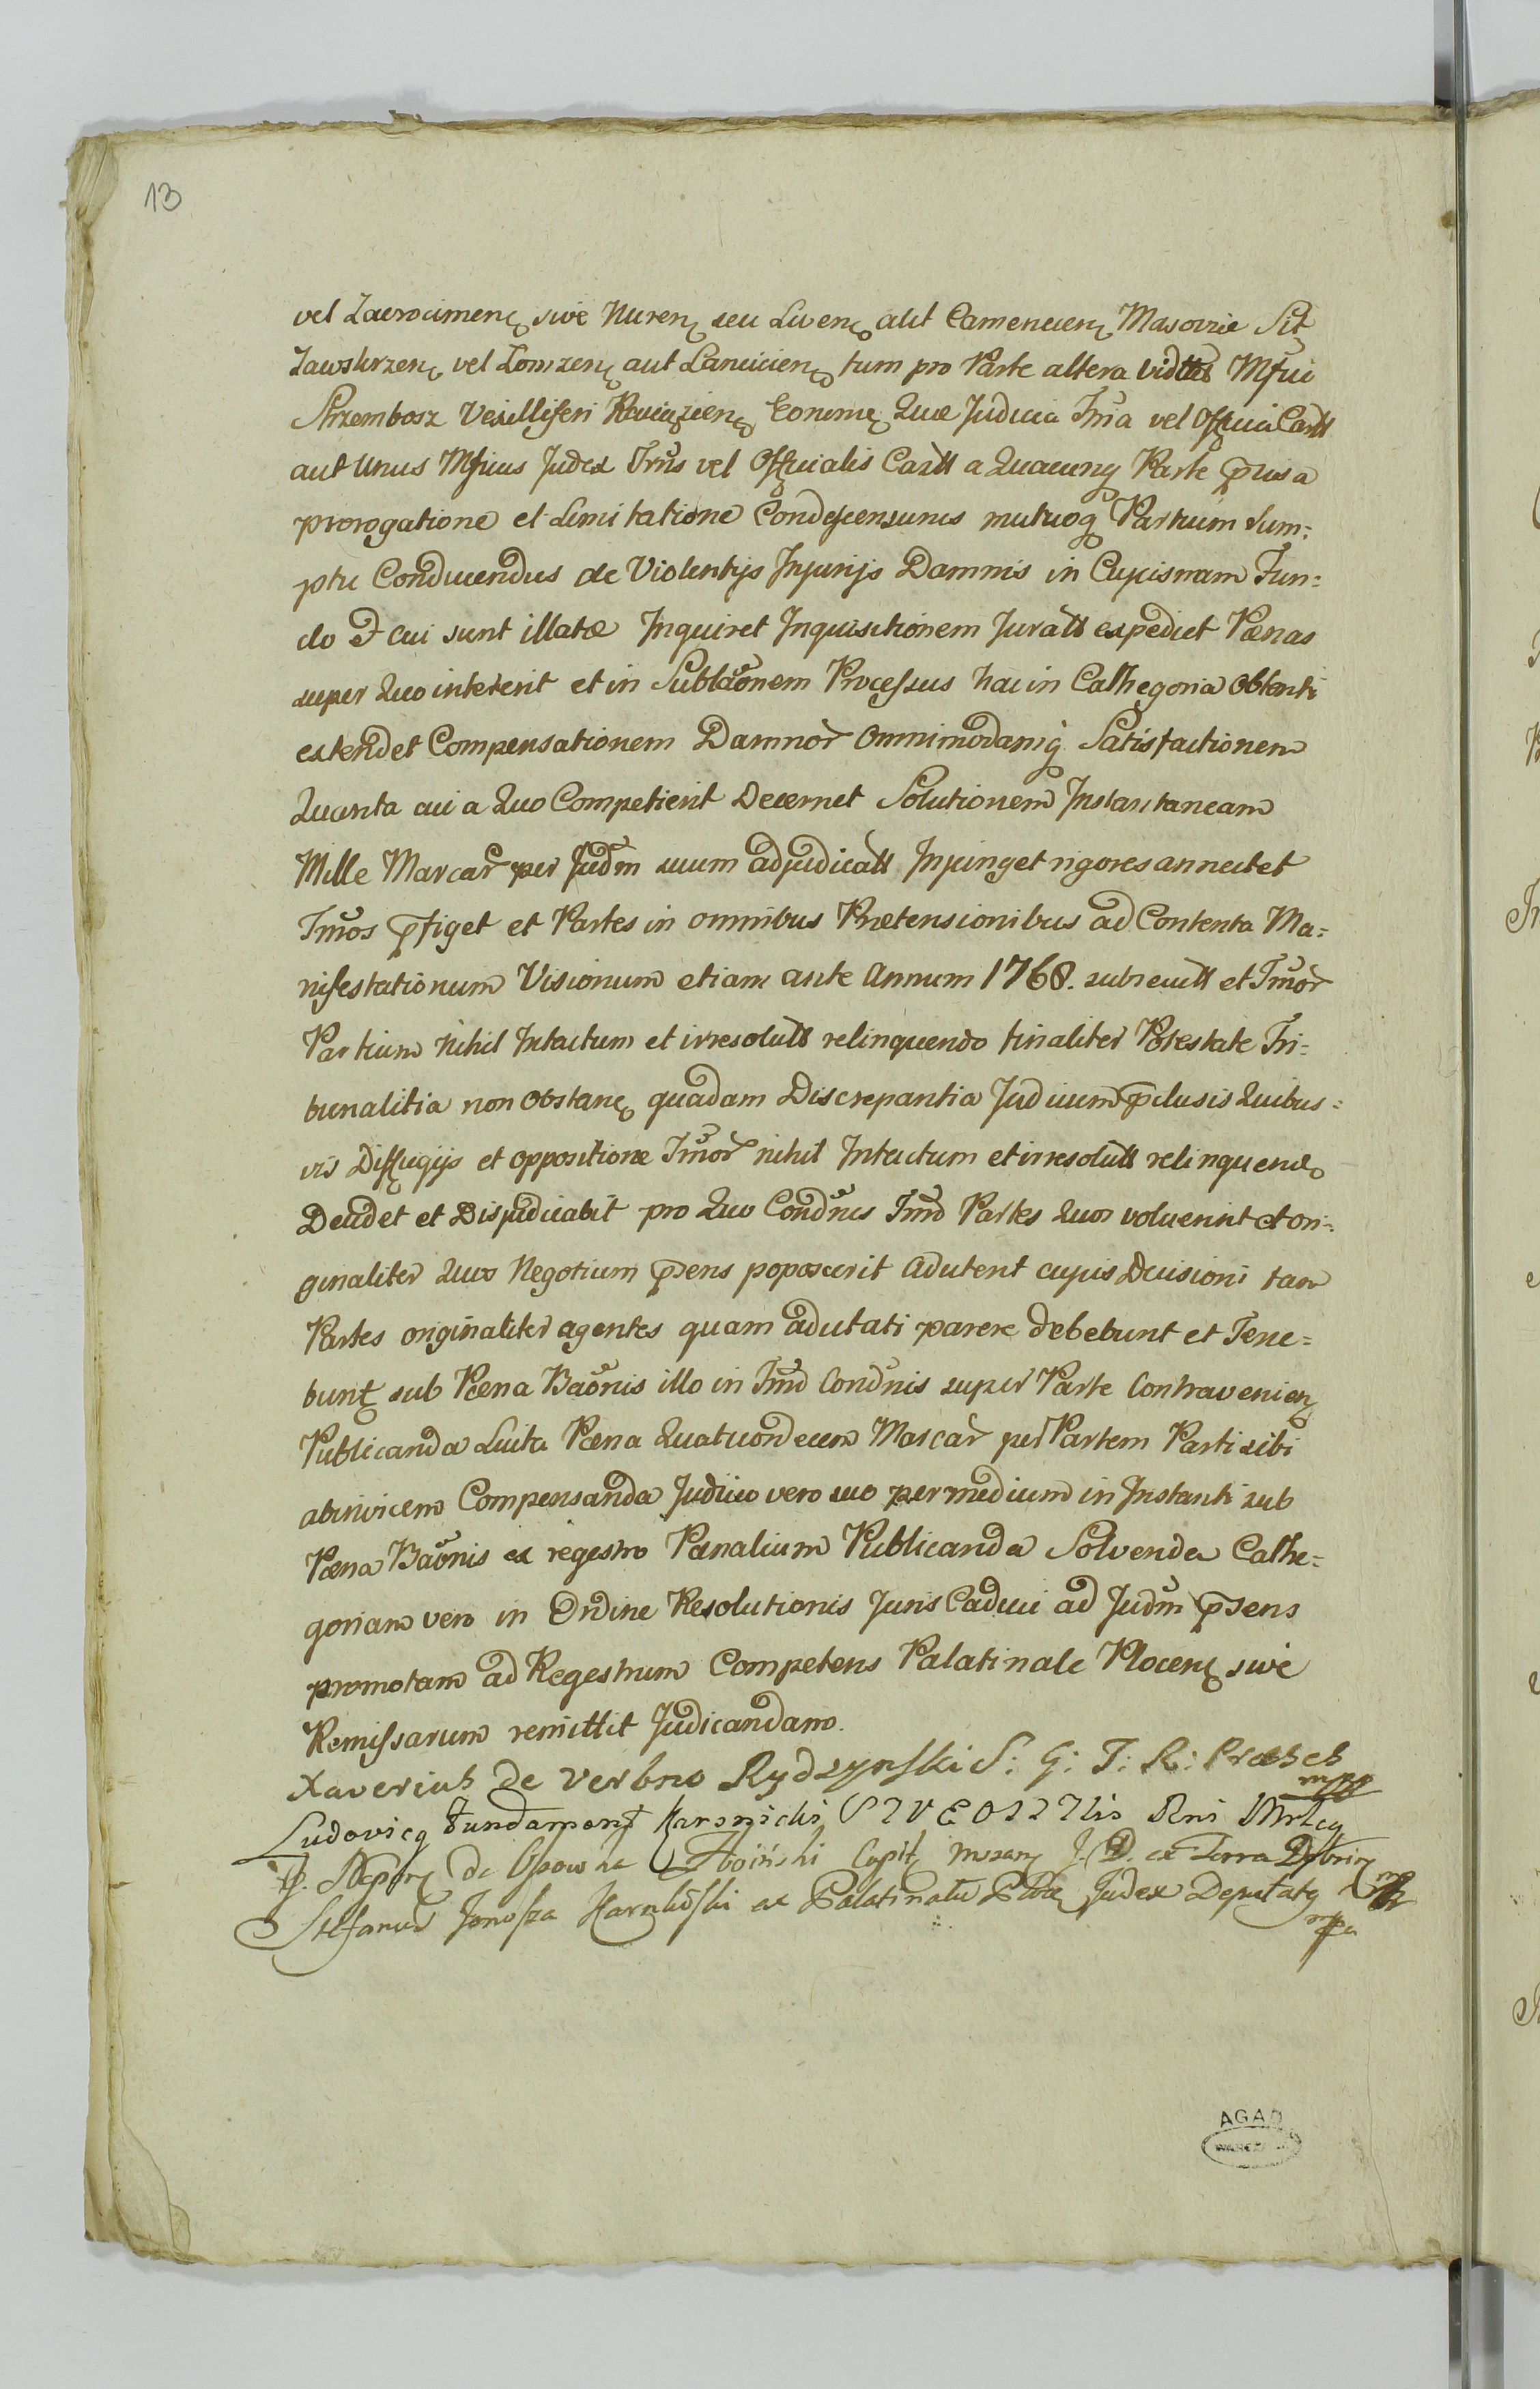 13
vel Zacrocimen, sive Nuren, seu Liven, alit Camenecien, Masoviæ Sit,
Zawskrzen, vel Lomzen, aut Lancicien, tum pro Parte altera vidtts Mfici
Strzembosz Vexilliferi Raciązien, Eorumq Quæ Judicia Trria vel Officia Castt
aut Unus Mficus Judex Trris vel Officialis Castt a Quacunq Parte prius a
prorogatione et Limitatione Condescensunis mutuoq Partium Sum:
ptu Conducendus de Violentijs Injurijs Damnis in Cujusnam Fun:
do et cui sunt illatæ Inquiret Inquisitionem Juratt expediet Pænas
super Quo intererit et in Sublãonem Processus hac in Cathegoria Obtenti
extendet Compensationem Damnor Omnimodamq Satisfactionem
Quanta cui a Quo Competierit Decernet Solutionem Instantaneam
Mille Marcar per Judm suum adjudicatt Injunget rigores annectet
Tmos pfiget et Partes in omnibus Prætensionibus ad Contenta Ma:
nifestationum Visionum etiam ante Annum 1768. subsecutt et Tmor
Partium nihil Intactum et irresolutt relinquendo finaliter Potestate Tri:
bunalitia non Obstan, quadam Discrepantia Judicum pclusis Quibus:
vis Diffugijs et oppositione Tmor nihil Intactum et irresolutt relinquendo
Decidet et Disjudicabit pro Quo Condnis Tmo Partes Quos voluerint et ori:
ginaliter Quos Negotium psens poposcerit Adcitent cujus Decisioni tam
Partes originaliter agentes quam adcitati parere debebunt et Tene:
bunt, sub Pæna Bãonis illo in Tmo Condnis super Parte Contravenien,
Publicanda Luita Pæna Quatuordecem Marcar per Partem Parti sibi
abinvicem Compensanda Judicio vero suo per medium in Instanti sub
Pæna Bãonis ex regestro Pænalium Publicanda Solvenda Cathe:
goriam vero in Ordine Resolutionis Juris Caduci ad Judm psens
promotam ad Regestrum Competens Palatinale Plocen, sive
Remissarum remittit Judicandam.
Xaverius de Verbno Rydzynski S: G: T: R: Præses
mpp
Ludovicq Karsnicki Rni
de Zboiński Capit, J. D. ex Terra Dobrin,
Stefanus Junosza Karnkoski ex Palatinatu Judex Deputatq
mpa
AGAD
WARSZAWA